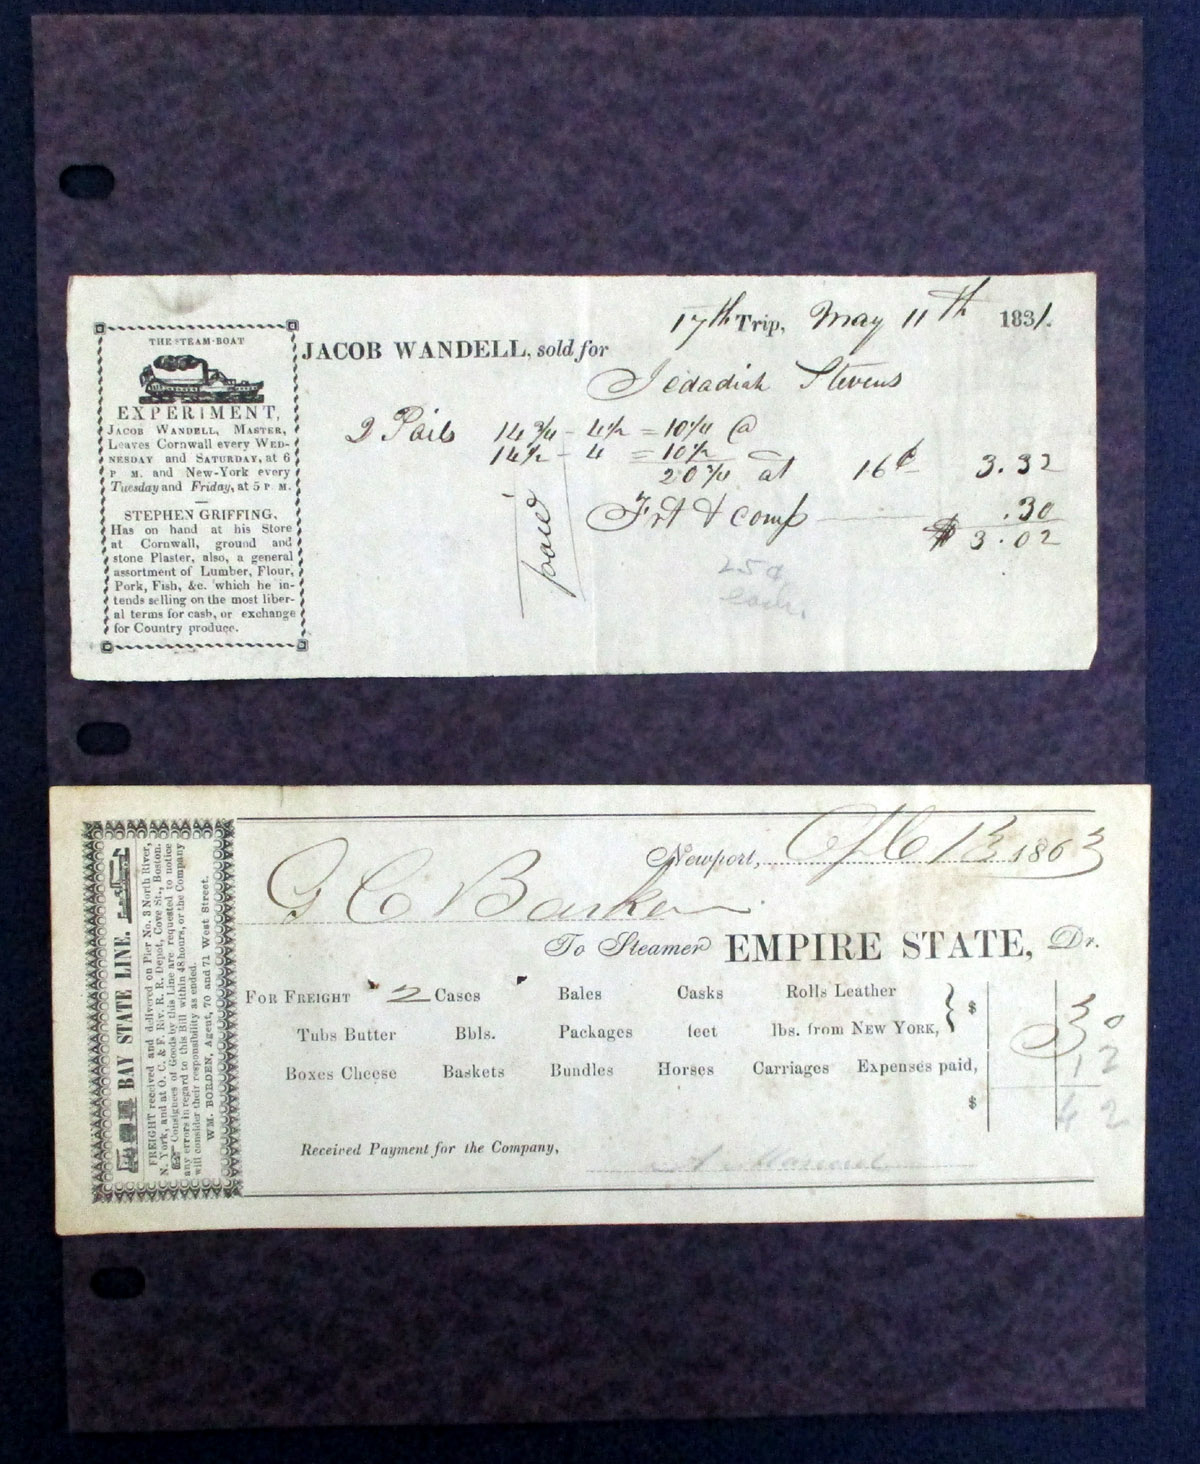 THE STEAM-BOAT
EXPERIMENT,
JACOB WANDELL, MASTER,
Leaves Cornwall every WED-
NESDAY and SATURDAY, at 6
P M. and New-York every
Tuesday and Friday, at 5 P M.
STEPHEN GRIFFING,
Has on hand at his Store
at Cornwall, ground and
stone Plaster, also, a general
assortment of Lumber, Flour,
Pork, Fish, &c. which he in-
tends selling on the most liber-
al terms for cash, or exchange
for Country produce.
17th Trip, May 11th 1831.
JACOB WANDELL, sold for
Jedadiah Stevens
2 Pails 14 3/4 - 4 1/2 = 10 1/4 @
14 1/2 - 4 = 10 1/2
20 3/4 at 16¢ 3.32
Frt & comp .30
$ 3.02
paid
25¢
each.
BAY STATE LINE.
FREIGHT received and delivered on Pier No. 3 North River,
N. York, and at O. C. & F. Riv. R. R. Depot, Cove St., Boston.
Consignees of Goods by this Line are requested to notice
any errors in regard to this Bill within 48 hours, or the Company
will consider their responsibility as ended.
WM. BORDEN, Agent, 70 and 71 West Street.
Newport, 13 1863
G C Barker
To Steamer EMPIRE STATE, Dr.
FOR FREIGHT 2 Cases Bales Casks Rolls Leather
Tubs Butter Bbls. Packages feet lbs. from NEW YORK, } $ 30
Boxes Cheese Baskets Bundles Horses Carriages Expenses paid, 12
$ 42
Received Payment for the Company,